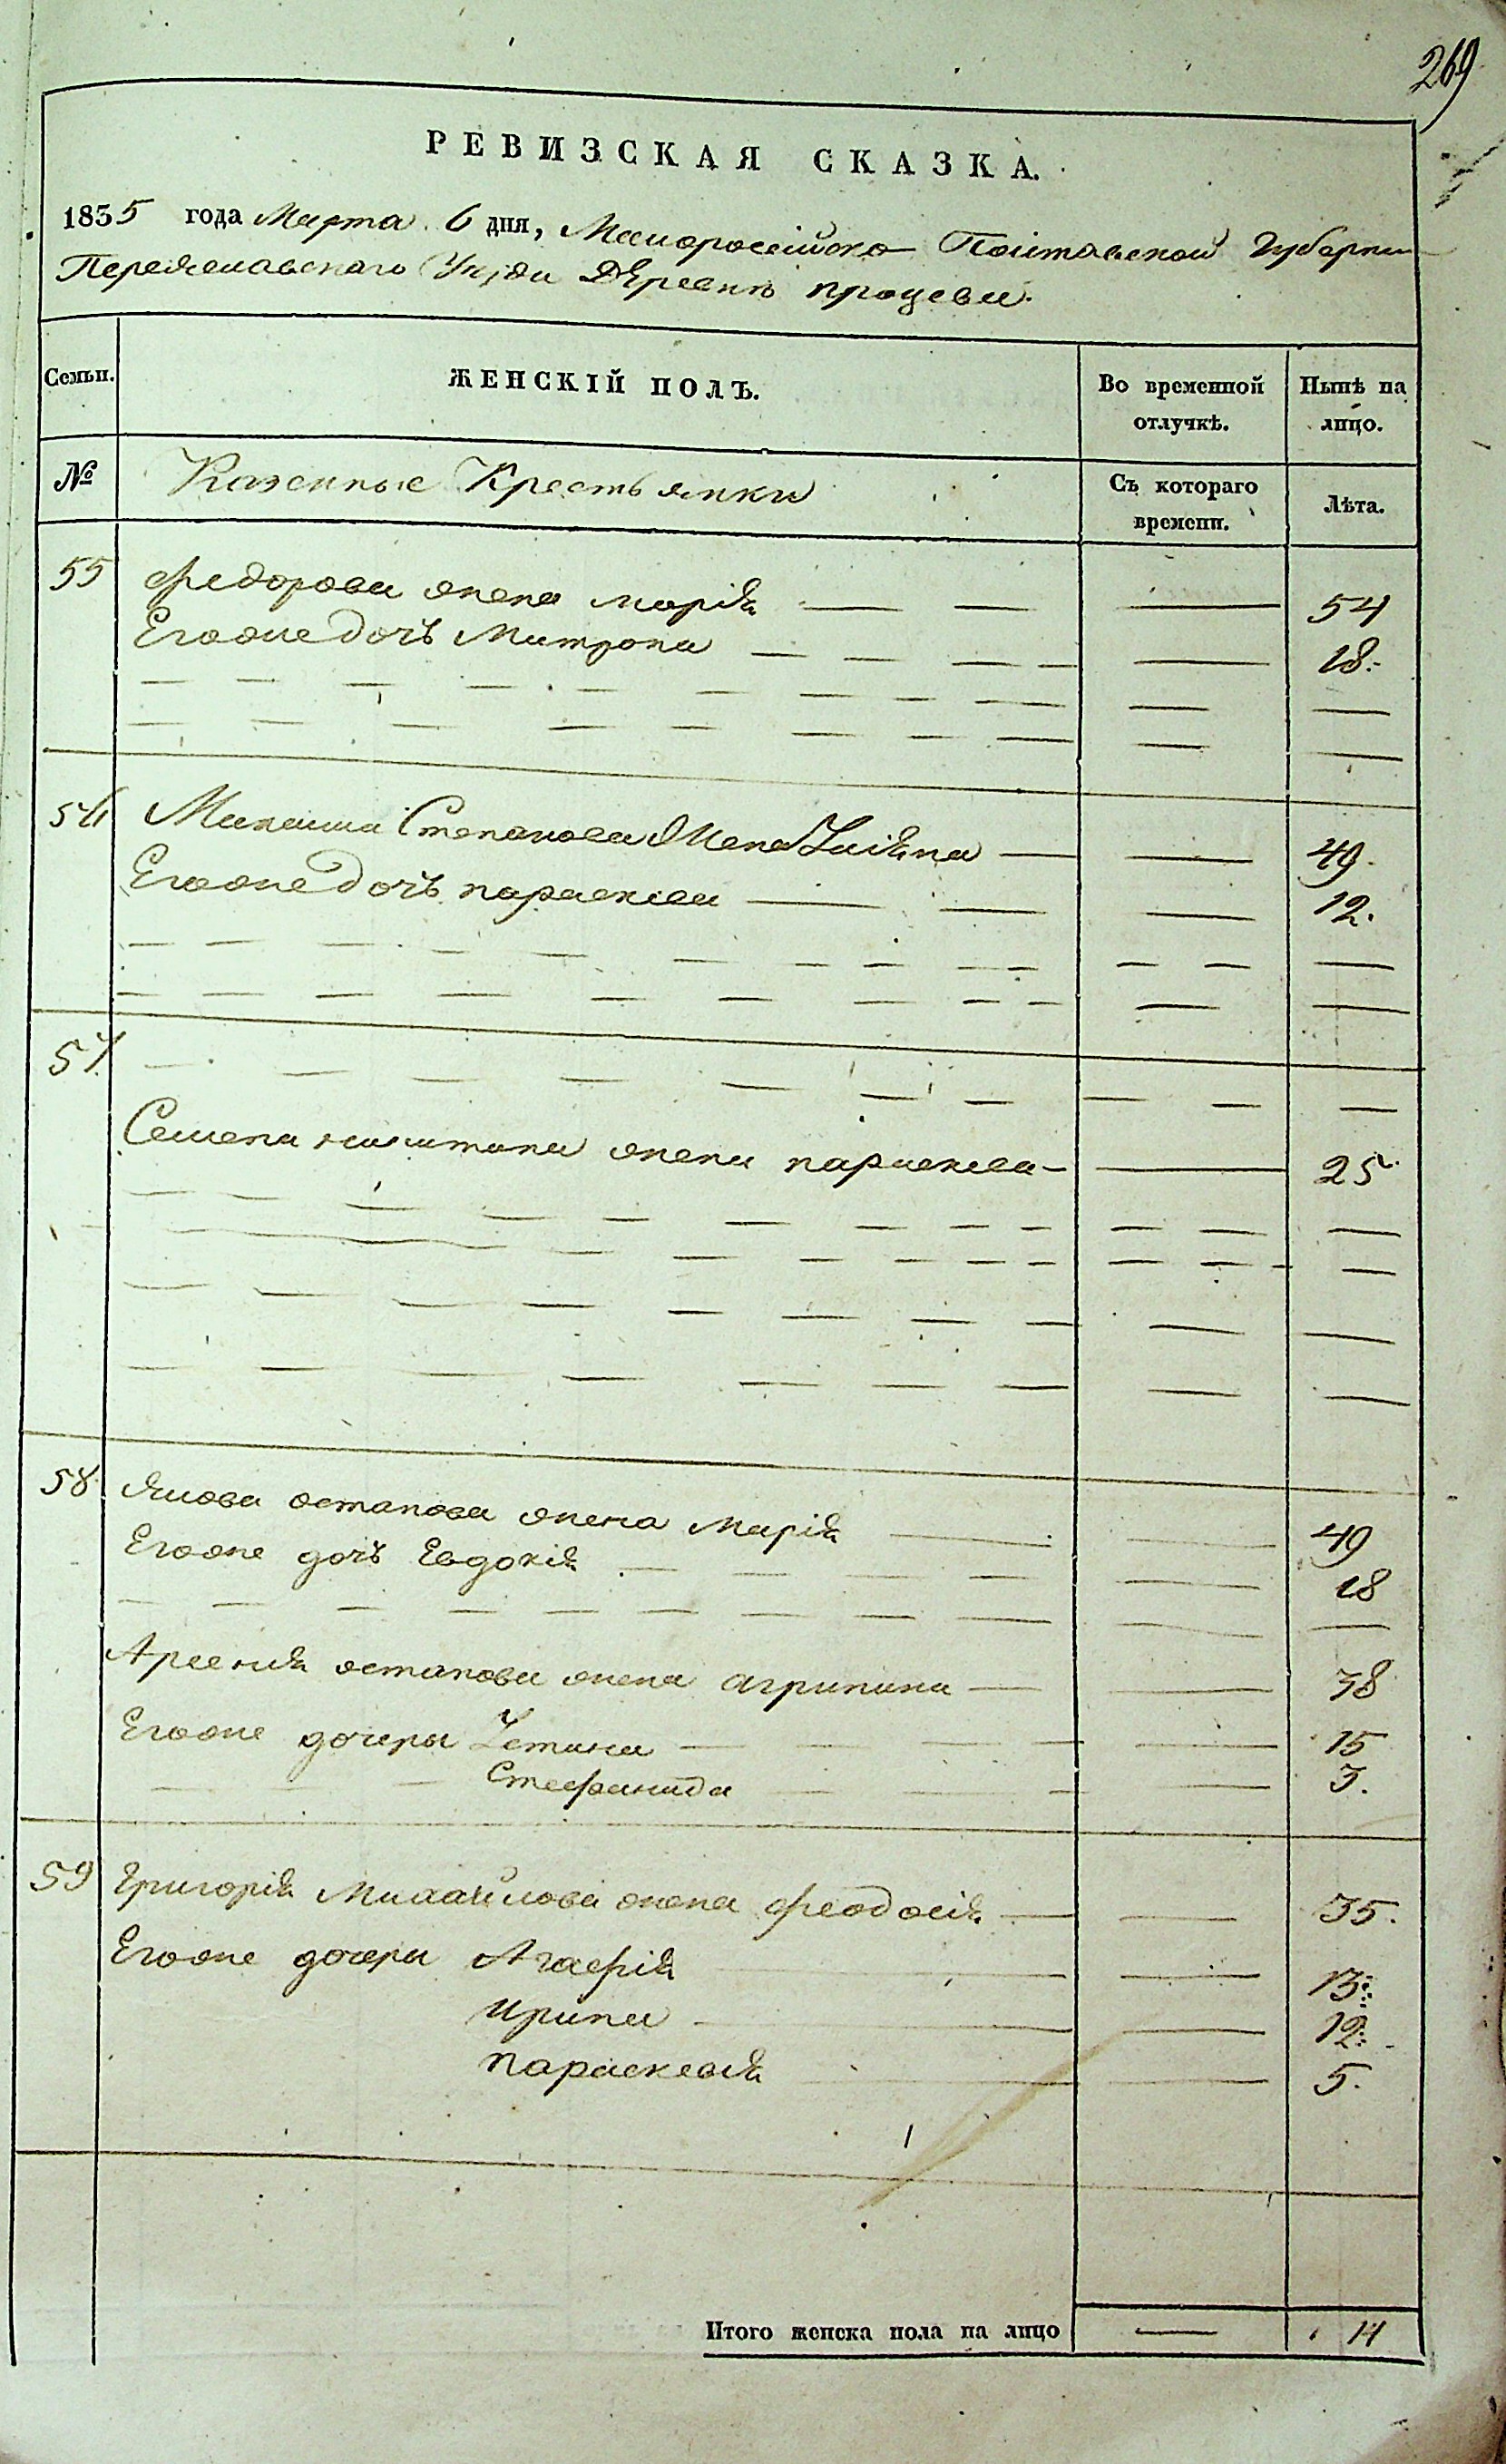 269
РЕВИЗСКАЯ СКАЗКА.
1835 года Марта 6 дня, Малоросейско Полтавской Губернии
Переяславскаго Уезда Деревни процевки.
Семьи. ЖЕНСКІЙ ПОЛЪ. Во временной отлучкѣ. Нынѣ на лицо.
№ Казенные Крестьянки Съ котораго времени. Лѣта.
55 Федорова жена марія 54
Егоже дочъ Матрона 18.
56 Степанова Жена Уліяна 49.
Егоже дочъ параскева 12.
57
Семена никитина жена параскева 25
58 Якова остапова жена Марія 49
Егоже дочъ Евдокія 18
Арсенія остапова жена агрипина 38
Егоже дочеры Устина 15
Стефанида 3.
59 Григорія Михайлова жена феодосія 35.
Егоже дочеры Агафія 13.
ирина 12.
параскевія 5.
Итого женска пола на лицо 14